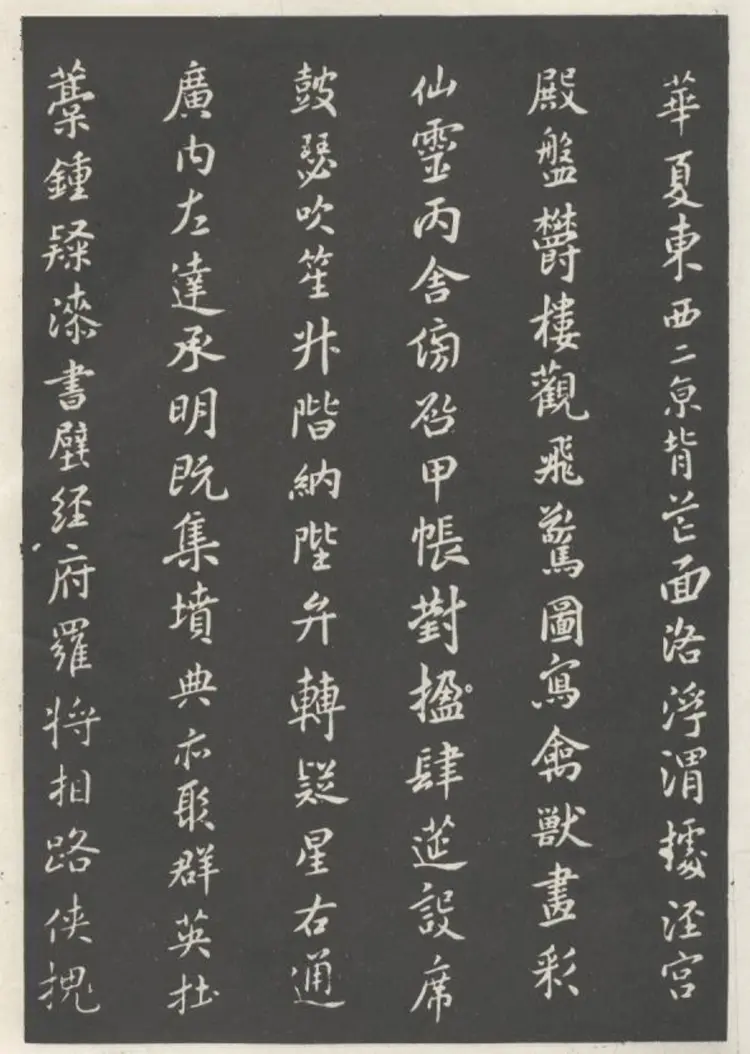 華夏東西二亰背芒面洛浮渭據涇宮
殿盤欝樓觀飛驚圖寫禽獸畫彩
仙靈丙舍傍啓甲帳對楹肆筵設席
皷瑟吹笙升階納陛弁轉疑星右通
廣内左達承明既集墳典亦聚群英杜
藁鍾隸漆書壁經府羅將相路俠槐